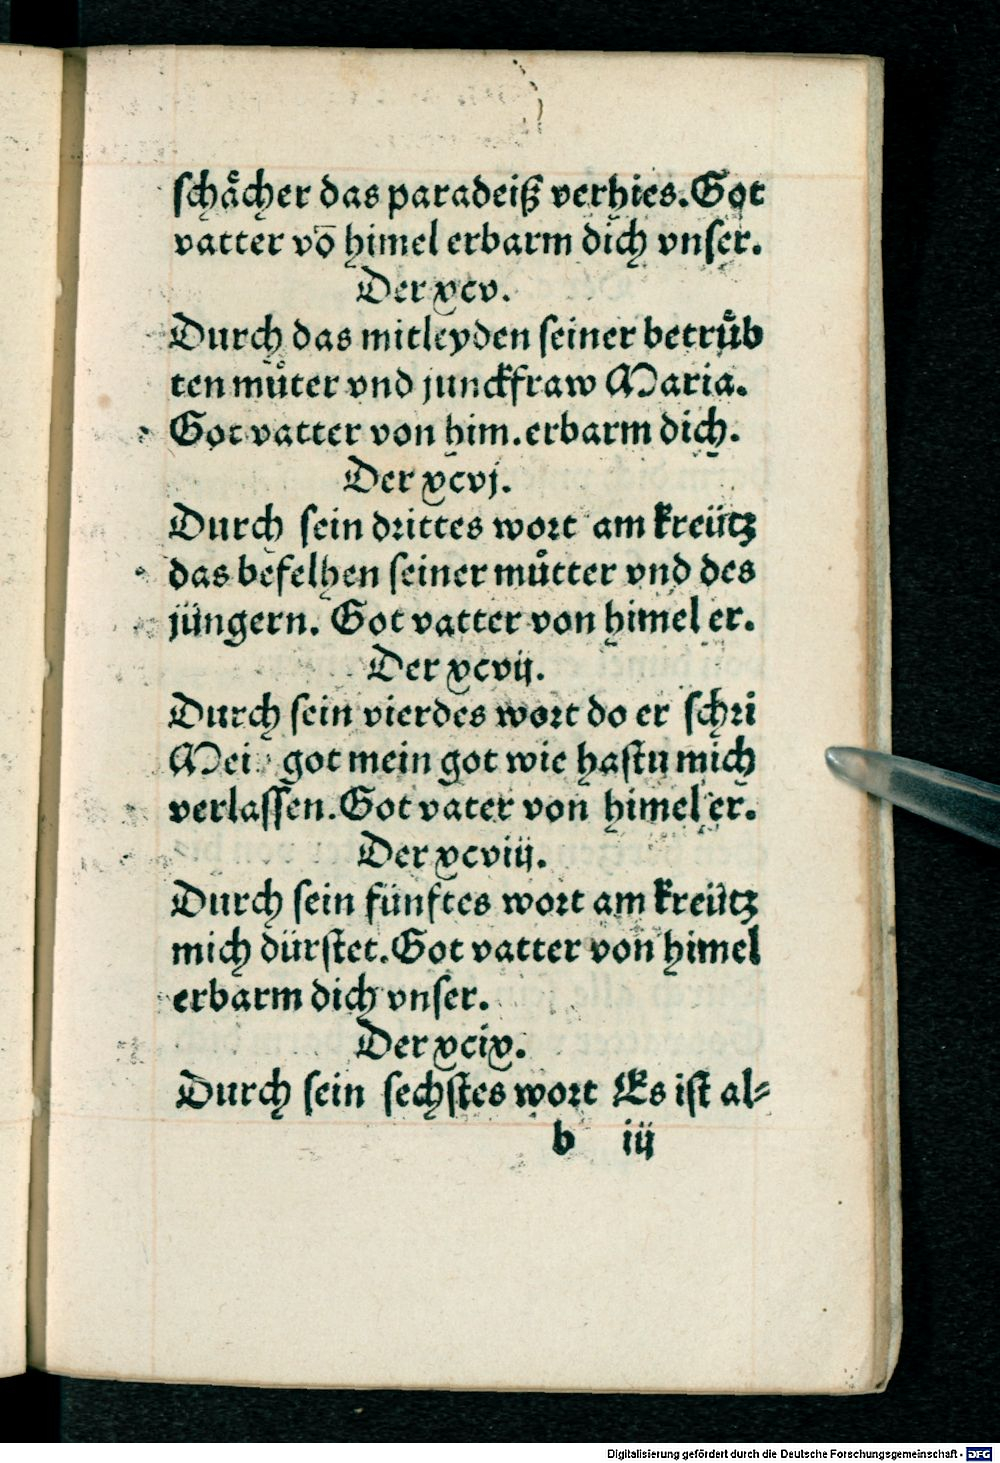 schaͤcher das paradeiß verhies. Got
vatter võ himel erbarm dich vnser.
Der xcv.
Durch das mitleyden seiner betruͤb
ten muͦter vnd junckfraw Maria.
Got vatter von him. erbarm dich.
Der xcvj.
Durch sein drittes wort am kreütz
das befelhen seiner muͦtter vnd des
jüngern. Got vatter von himel er.
Der xcvij.
Durch sein vierdes wort do er schri
Mei got mein got wie hastu mich
verlassen. Got vater von himel er.
Der xcviij.
Durch sein fünftes wort am kreütz
mich dürstet. Got vatter von himel
erbarm dich vnser.
Der xcix.
Durch sein sechstes wort Es ist al⸗
b iij
Digitalisierung gefördert durch die Deutsche Forschungsgemeinschaft - DFG